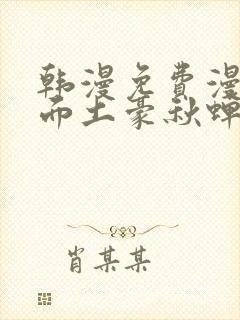 韩漫免费漫
而土豪秋蝉
肖某某